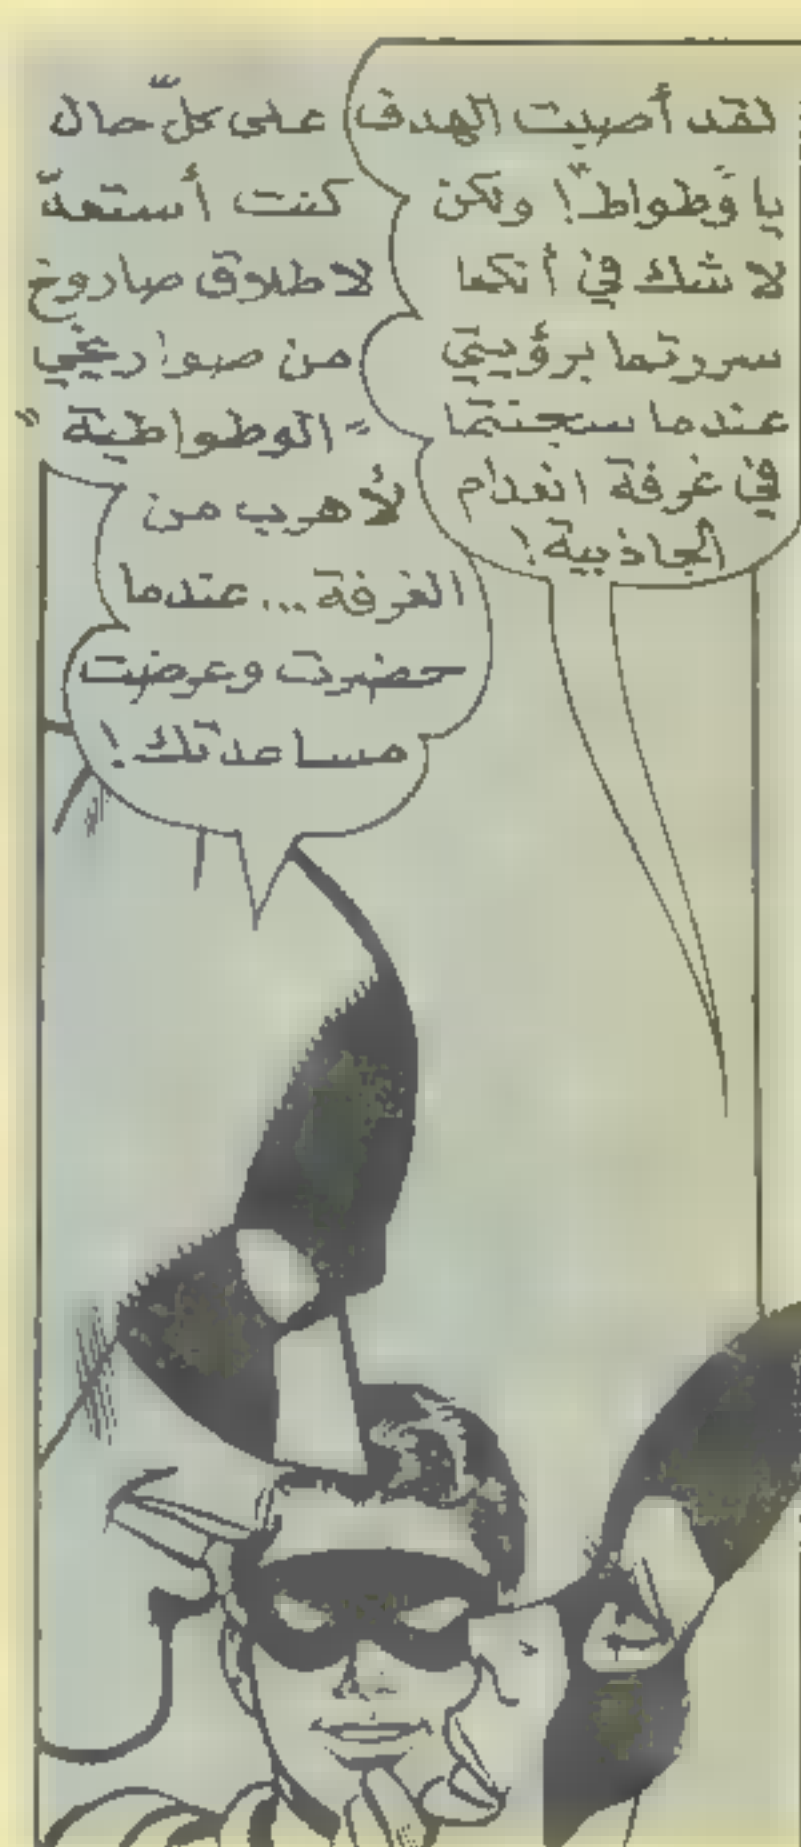 لقد أصبت الهدف
يا وطواط! ولكن
لا شك في أنكما
سررتما برؤيتي
عندما سجنتما
في غرفة انعدام
الجاذبية!
على كلّ حال
كنت أستعدّ
لاطلاق صاروخ
من صواريخي
"الوطواطية"
لأهرب من
الغرفة... عندما
حضرت وعرضت
مساعدتك!